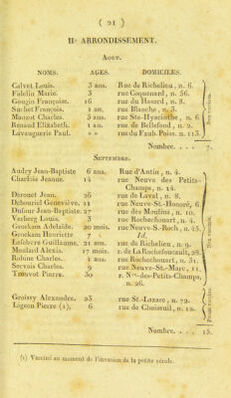 ( 21 )
IIe ARRONDISSEMENT.
AOUT.
NOMS. AGES. DOMICILES.
Calvet Louis. 3 ans. Rue de Richelieu, n. 6.
Falelin Marie. 3 rue Coquenard, n. 56.
Goujin Françoise. 16 rue du Hasard, n. 8.
Suchet François. 1 an. rue Blanche, n. 3.
Mangot Charles. 3 ans. rue Ste-Hyacinthe, n. 6
Renaud Elizabeth. 1 an. rue de Bellefond, n. 2.
Lavauguerie Paul. » » rue du Faub. Poiss. n. 113.
Nombre. . . . 7.
SEPTEMBRE.
Audry Jean-Baptiste 6 ans. Rue d'Antin, n. 4.
Charbin Jeanne. 14 rue Neuve des Petits-
Champs, n. 14.
Jean. 26 rue de Laval, n. 8.
Geneviève. 21 rue Neuve-St-Honoré, 6
Dufour Jean-Baptiste. 27 rue des Moulins, n. 10.
Louis. 2 rue Rochechouart, n. 4.
Groskam Adélaïde. 20 mois. rue Neuve-S.-Roch, n. 45.
Groskam Henriette 7 Id.
Lefebvre Guillaume. 21 ans. rue de Richelieu, n. 9.
Alexis. 17 mois. r. de La Rochefoucault, 28.
Charles. 2 ans. rue Rochechouart, n. 31.
Servais Charles. 9 rue Neuve-St.-Marc, 11.
Pierre. 30 r. Nve-des-Petits-Champs,
n. 26.
Groissy Alexandre. 23 rue St-Lazare, n. 72.
Lignon Pierre (1). 6 rue de Choiseuil, n. 12.
Nombre. . . . 15.
(1) Vacciné au moment de l'invasion de la petite vérole.